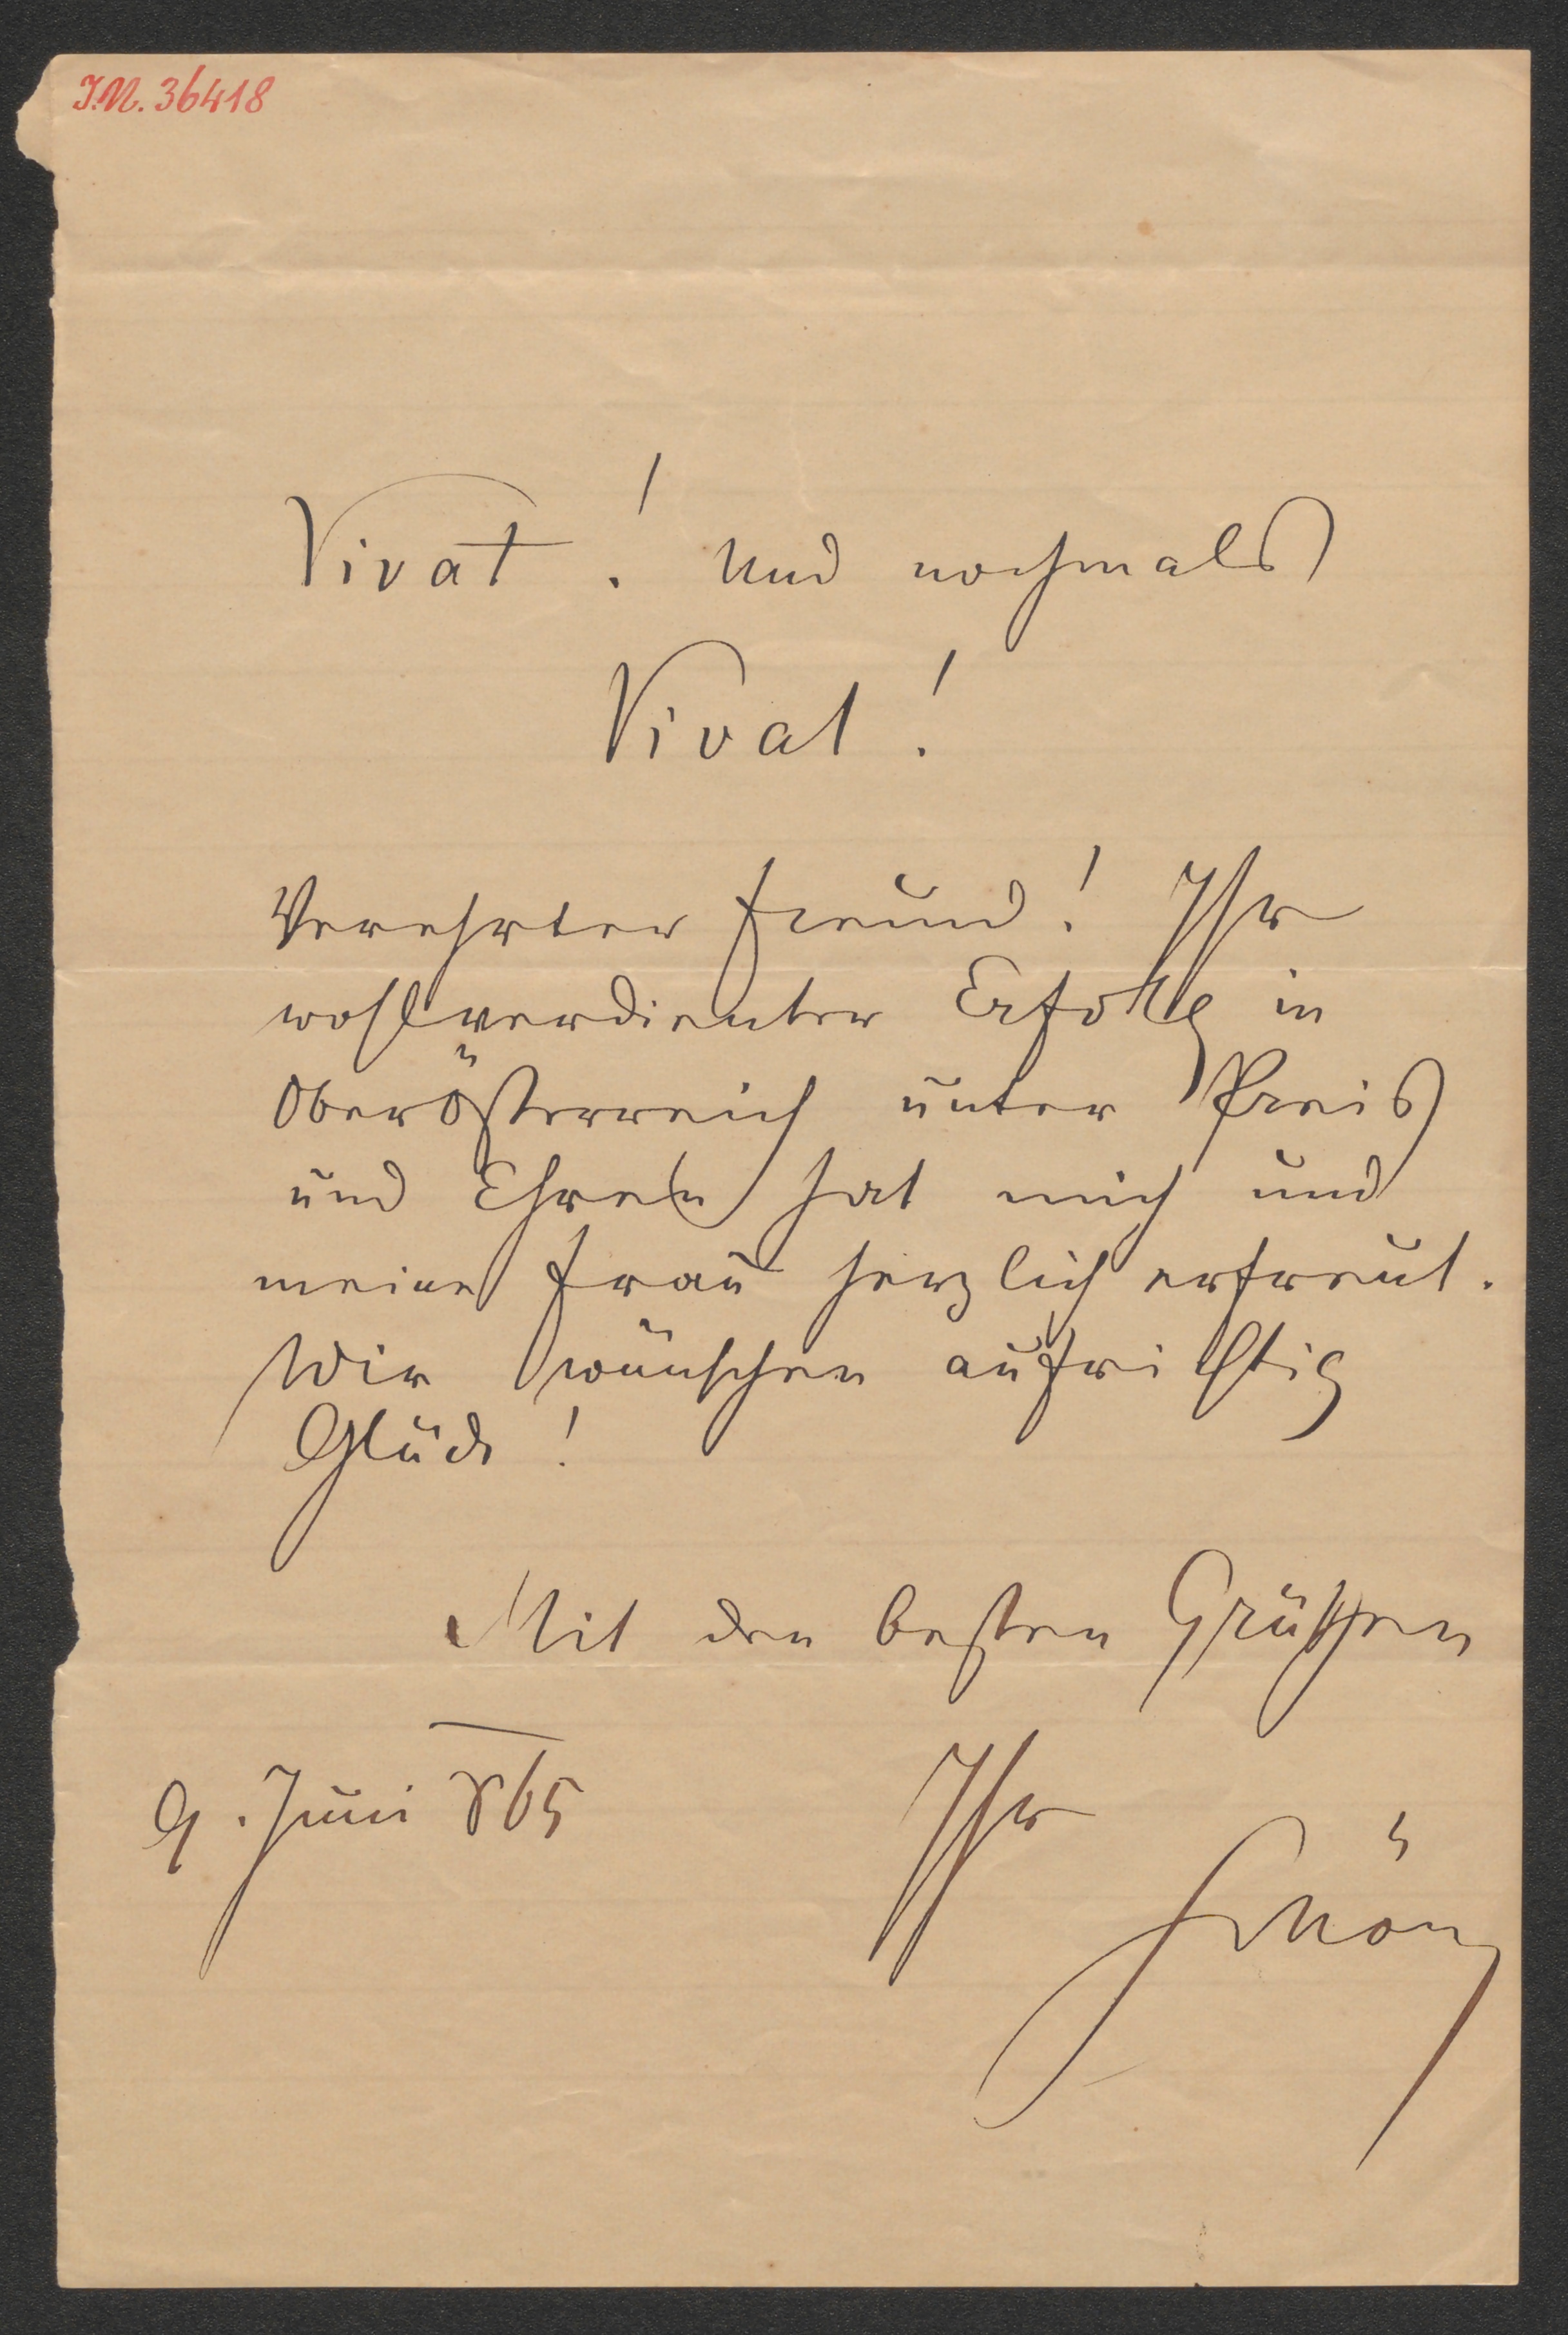 I.N. 36418
Vivat! Und nochmals
Vivat!
Verehrter Freund! Ihr
wohlverdienter Erfolg in
Oberösterreich unter Preis
und Ehren hat mich und
meine Frau herzlich erfreut.
Wir wünschen aufrichtig
Glück!
Mit den besten Grüßen
9. Juni 865 Ihr
Schön